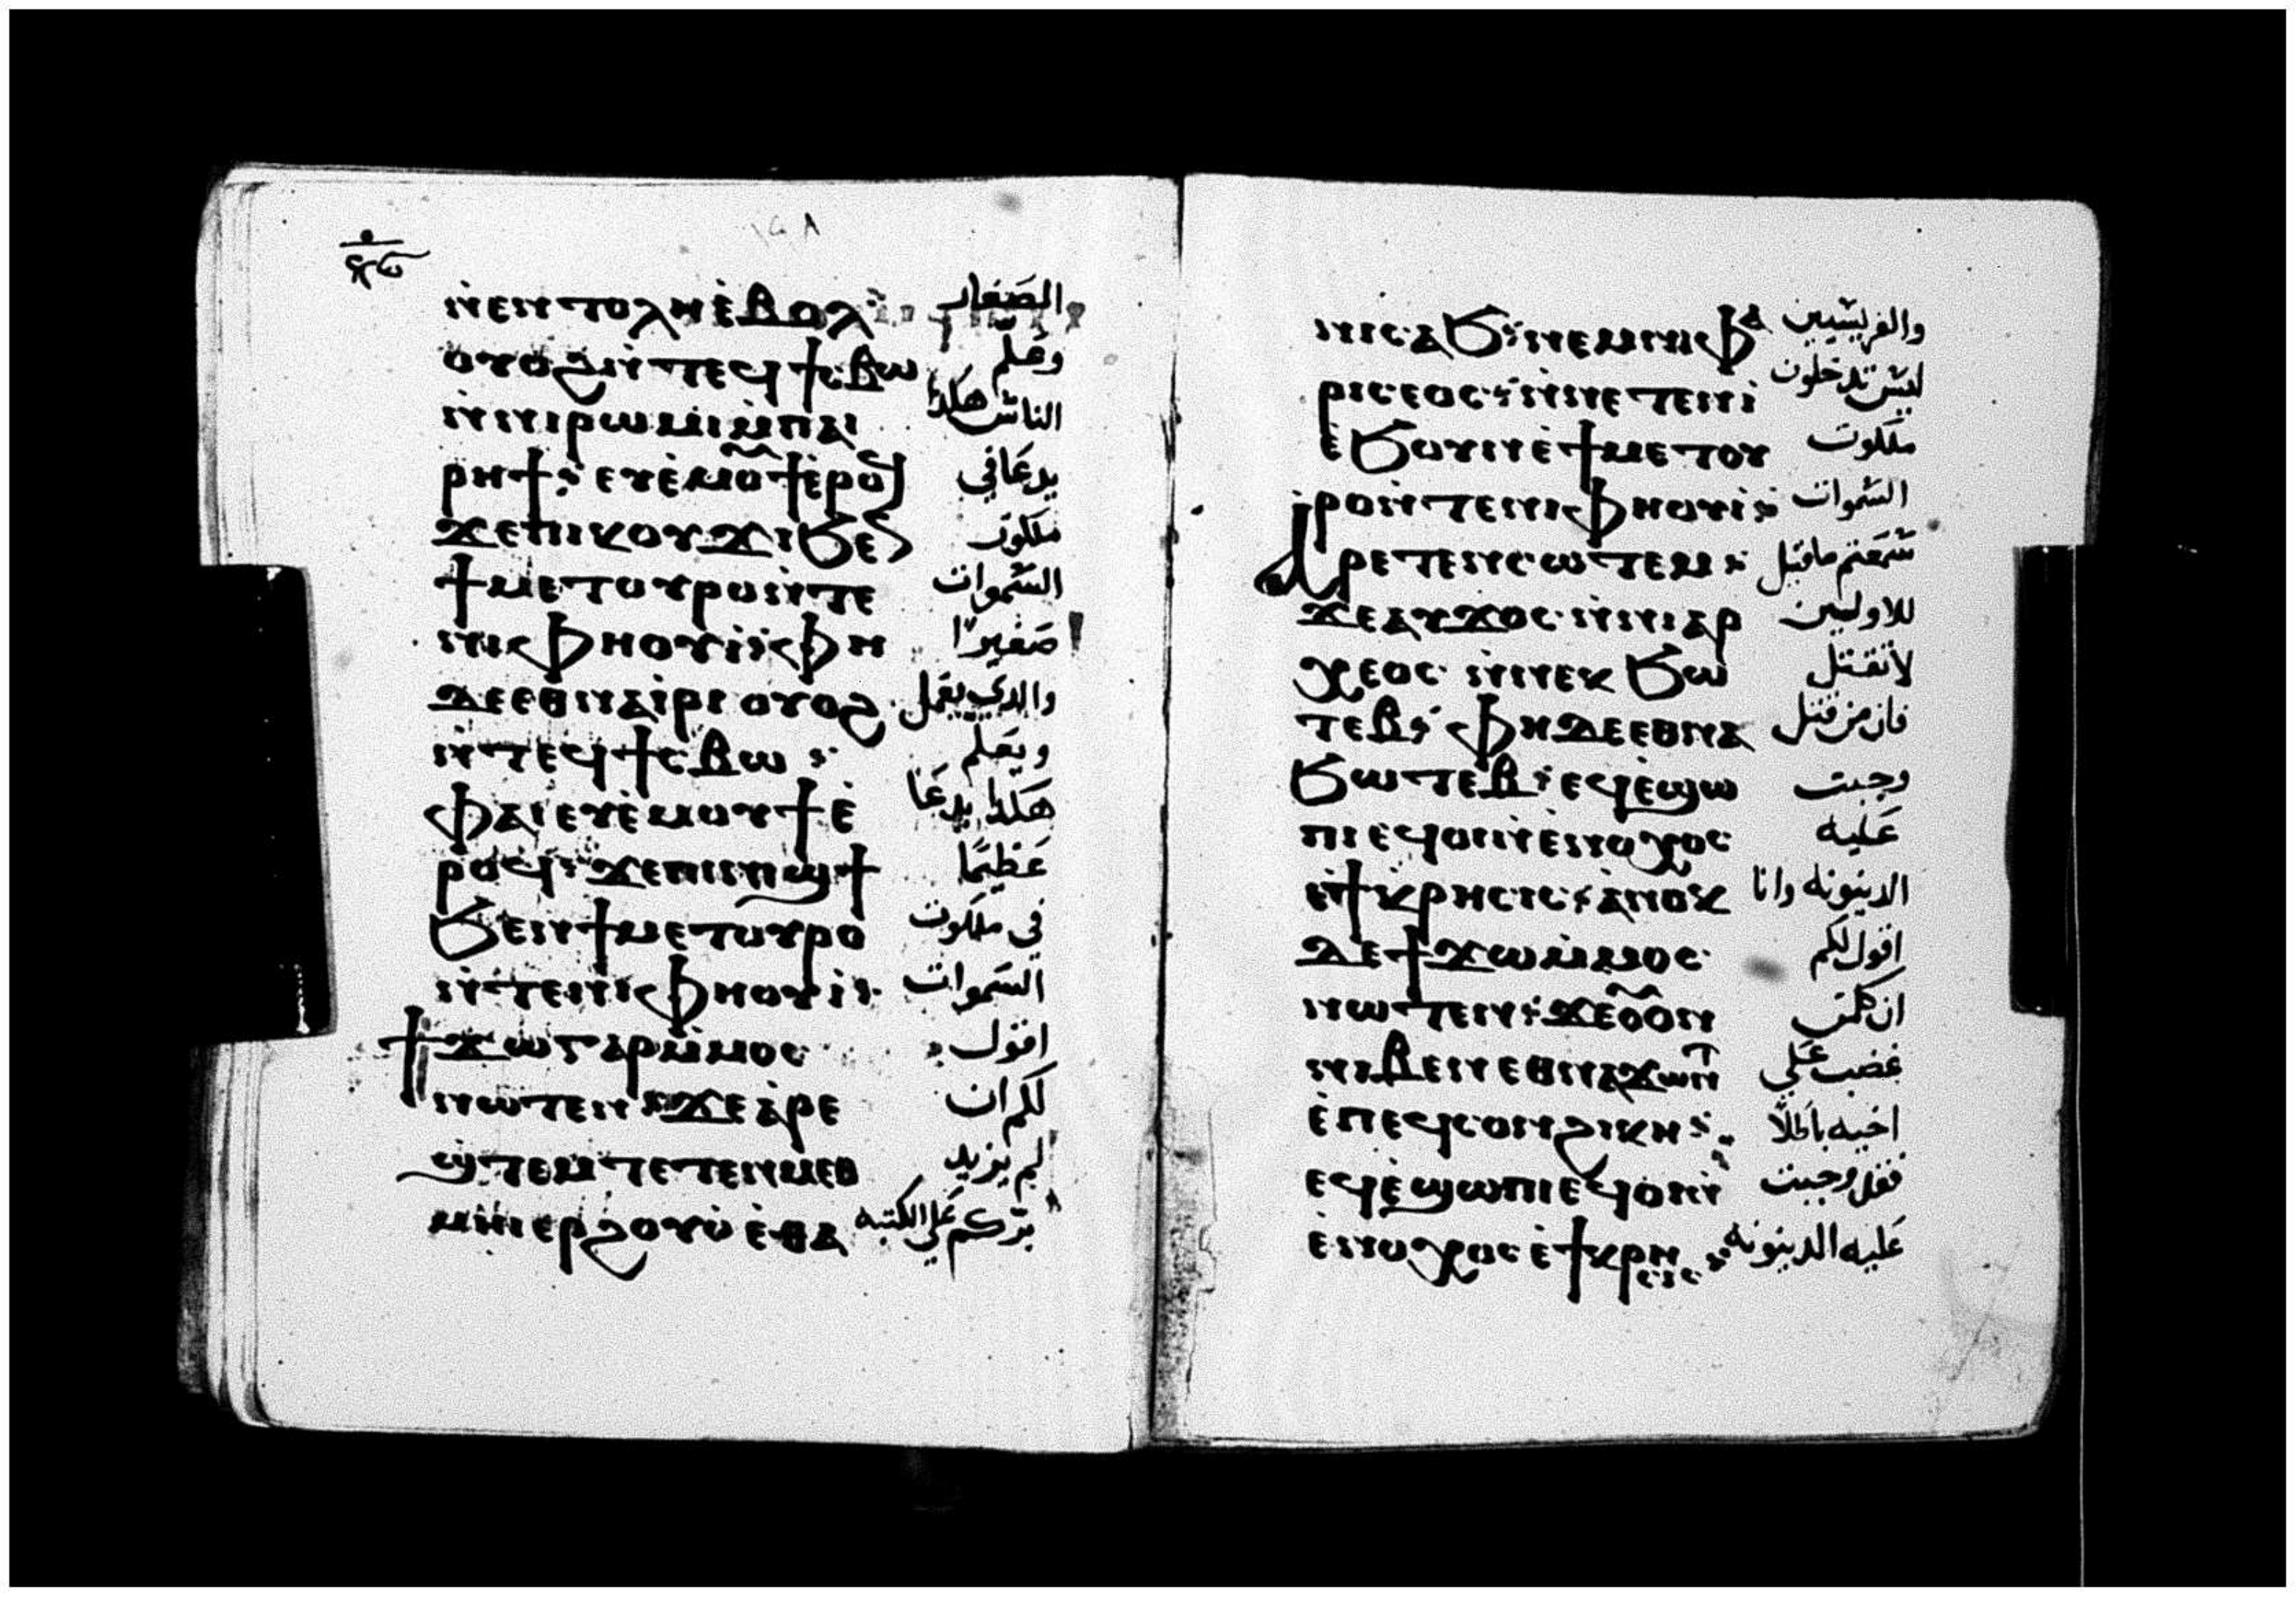 ⲛ̀ⲉⲛⲧⲟⲗⲏ ⲉ̀ⲃⲟⲗ الصغار
ⲟⲩⲟϩ ⲛ̀ⲧⲉϥϯⲥⲃⲱ وعلم
ⲛ̀ⲛⲓⲣⲱⲙⲓ ⲙ̀ⲡⲁⲓ الناس هكذا
ⲣⲏϯ ⲉⲩⲉ̀ⲙⲟⲩϯ ⲉ̀ⲣⲟϥ يدعا في
ϫⲉ ⲡⲓⲕⲟⲩϫⲓ ϧⲉⲛ ملكوت
ϯⲙⲉⲧⲟⲩⲣⲟ ⲛ̀ⲧⲉ السموات
ⲛⲓⲫⲏⲟⲩⲓ̀ ⲫⲏ صغيرا
ⲇⲉ ⲉⲑⲛⲁⲓ̀ⲣⲓ ⲟⲩⲟϩ والدي يعمل
ⲛ̀ⲧⲉϥϯⲥⲃⲱ ويعلم
ⲫⲁⲓ ⲉⲩⲉ̀ⲙⲟⲩϯ ⲉ̀ هكذا يدعا
ⲣⲟϥ ϫⲉ ⲡⲓⲛⲓϣϯ عظيما
ϧⲉⲛ ϯⲙⲉⲧⲟⲩⲣⲟ في ملكوت
ⲛ̀ⲧⲉ ⲛⲓⲫⲏⲟⲩⲓ̀ السموات
ϯϫⲱ ⲅⲁⲣ ⲙ̀ⲙⲟⲥ اقول
ⲛⲱⲧⲉⲛ ϫⲉ ⲁⲣⲉ لكم ان
ϣⲧⲉⲙ ⲧⲉⲧⲉⲛⲙⲉⲑ لم يزيد
ⲙⲏⲓ ⲉⲣϩⲟⲩⲟ̀ ⲉ̀ⲑⲁ بركم علي الكتبه
ⲛⲓⲥⲁϧ ⲛⲉⲙ ⲛⲓⲫⲁ والفريسيين
ⲣⲓⲥⲉⲟⲥ ⲛ̀ⲛⲉⲧⲉⲛⲓ̀ ليس تدخلون
ⲉ̀ϧⲟⲩⲛ ⲉ̀ϯⲙⲉⲧⲟⲩ ملكوت
ⲣⲟ ⲛ̀ⲧⲉ ⲛⲓⲫⲏⲟⲩⲓ̀ السموات
ⲁⲣⲉⲧⲉⲛⲥⲱⲧⲉⲙ سمعتم ما قيل
ϫⲉ ⲁⲩϫⲟⲥ ⲛ̀ⲛⲓⲁⲣ للاولين
ⲭⲉⲟⲥ ⲛ̀ⲛⲉⲕϧⲱ لا تقتل
ⲧⲉⲃ ⲫⲏ ⲇⲉ ⲉⲑⲛⲁ فان من قتل
ϧⲱⲧⲉⲃ ⲉϥⲉ̀ϣⲱ وجبت
ⲡⲓ ⲉϥⲟⲓ ⲛ̀ⲉⲛⲟⲭⲟⲥ عليه
ⲉ̀ϯⲕⲣⲏⲥⲓⲥ ⲁ̀ⲛⲟⲕ الدينونه وانا
ⲇⲉ ϯϫⲱ ⲙ̀ⲙⲟⲥ اقول لكم
ⲛⲱⲧⲉⲛ ϫⲉ ⲟⲩⲟⲛ ان كلمن
ⲛⲓⲃⲉⲛ ⲉⲑⲛⲁϫⲱⲛⲧ غضب علي
ⲉ̀ⲡⲉϥⲥⲟⲛ ϩⲓⲕⲏ اخيه باطلا
ⲉϥⲉ̀ϣⲱⲡⲓ ⲉϥⲟⲓ ⲛ̀ فقد وجبت
ⲉⲛⲟⲭⲟⲥ ⲉ̀ϯⲕⲣⲏⲥⲓⲥ عليه الدينونه